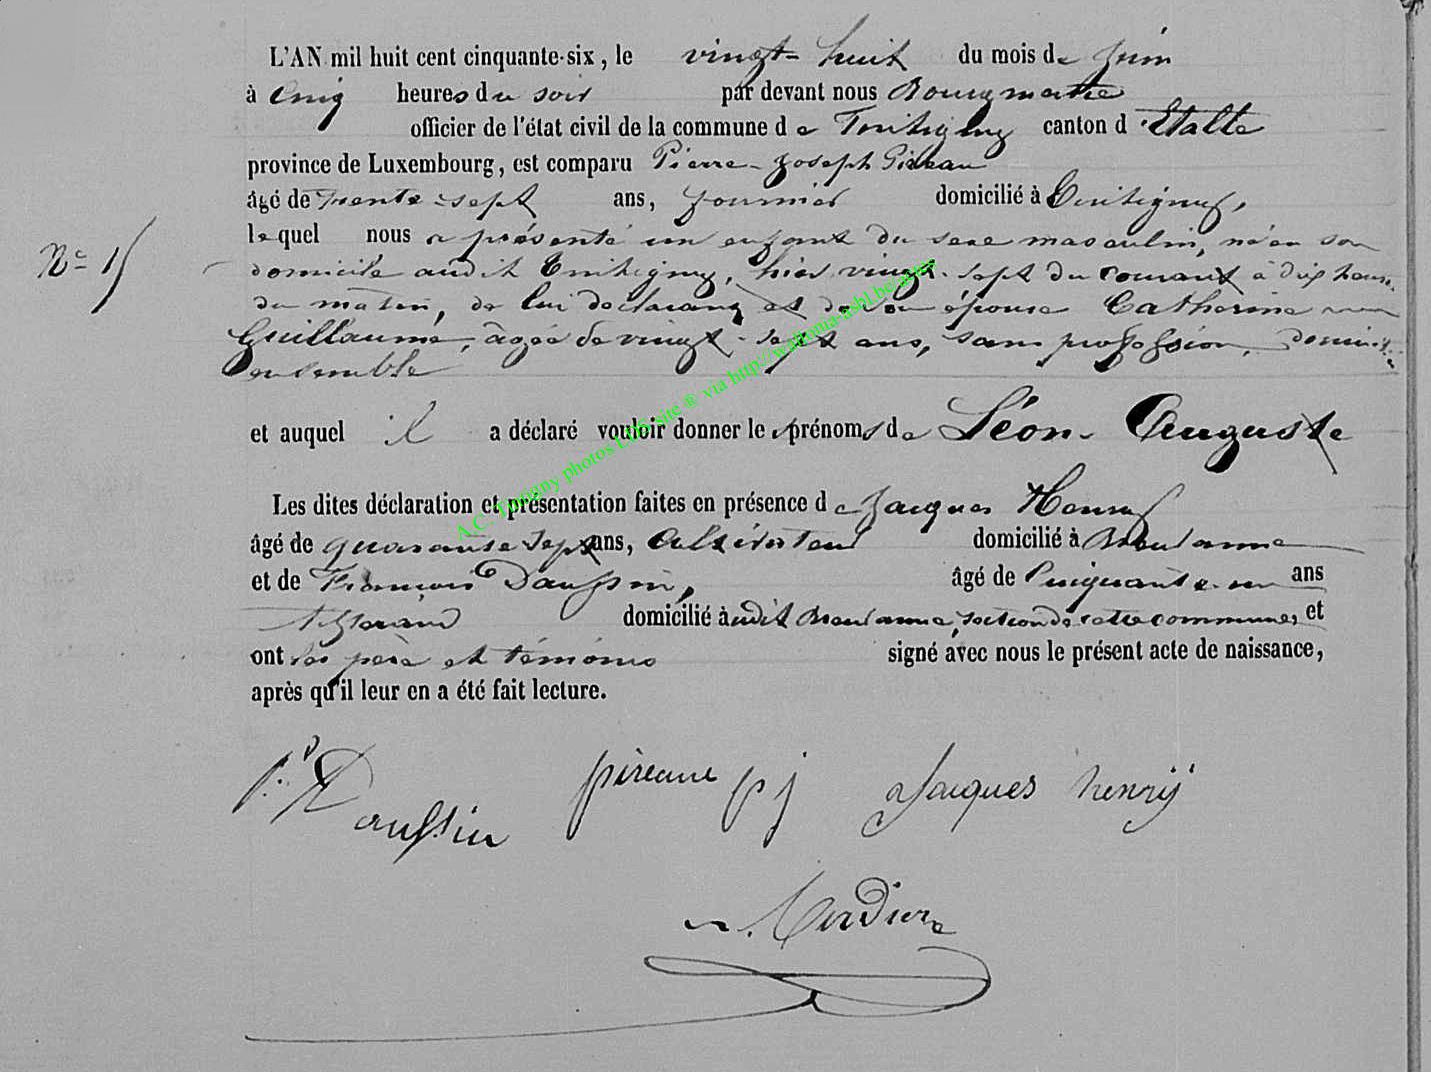 L'AN mil huit cent cinquante-six, le vingt-huit du mois de juin
à cinq heures du soir par devant nous Bourgmestre
officier de l'état civil de la commune de Tintigny canton d'Etalle
province de Luxembourg, est comparu Pierre-Joseph Pireau
âgé de trente-sept ans, journier domicilié à Tintigny,
lequel nous a présenté un enfant du sexe masculin, né en son
N° 15
domicile audit Tintigny, hier vingt-sept du courant à dix heures
du matin, de lui déclarant et de son épouse Catherine
Guillaume, âgée de vingt-sept ans, sans profession,
ensemble
et auquel il a déclaré vouloir donner les prénoms de Léon-Auguste
A.C. Tintigny photos LDS site ® via http://wallonia-asbl.be/
Les dites déclaration et présentation faites en présence de Jacques Henry
âgé de quarante sept ans, cultivateur domicilié à
et de François Daussin, âgé de cinquante-un ans
tisserand domicilié audit section de cette commune, et
ont les père et témoins signé avec nous le présent acte de naissance,
après qu'il leur en a été fait lecture.
Daussin pj Jacques henry